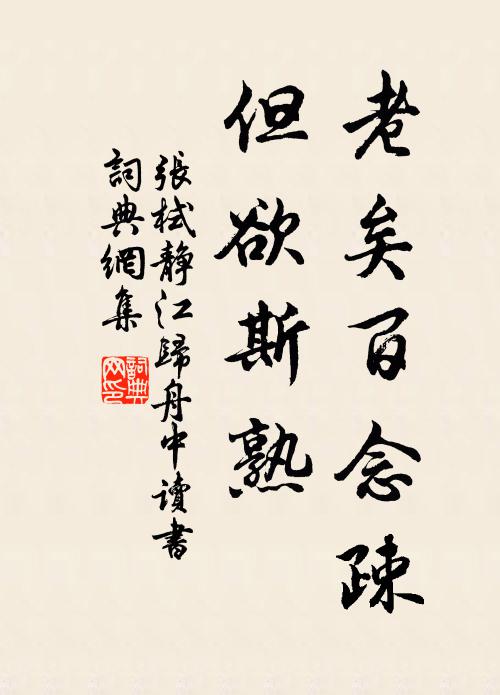 老矣百念疎
但欲斯熟
張栻靜江歸舟中讀書
詞典網集
詞典網印